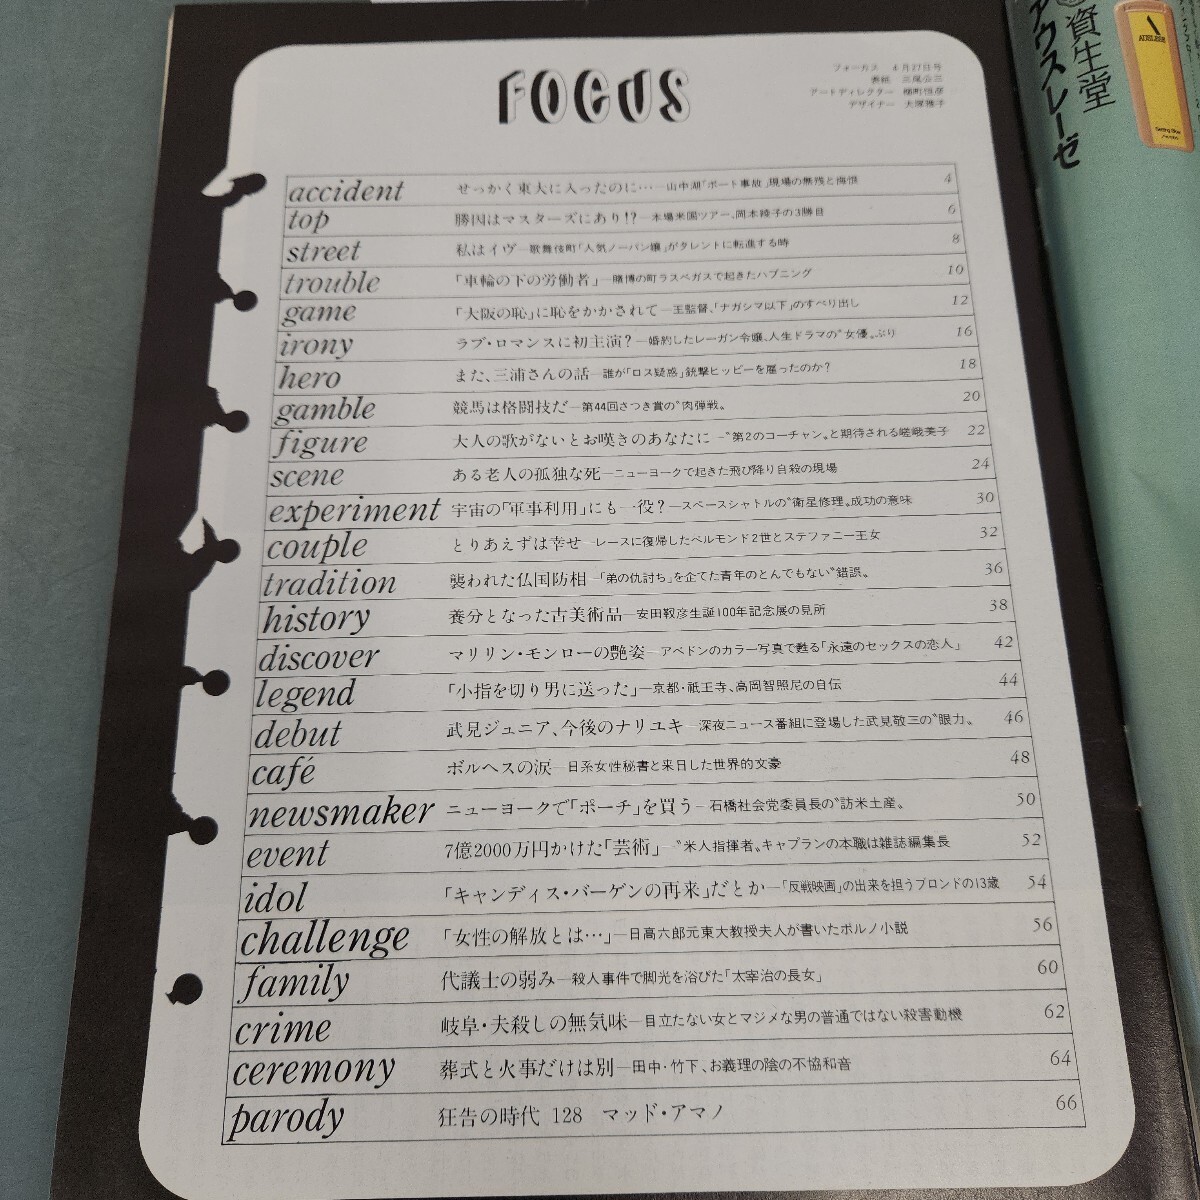 FOCUS
フォーカス 4月27日号
表紙 三尾公三
アートディレクター 樋町恒彦
デザイナー 大塚雅子
accident せっかく東大に入ったのに…―山中湖「ボート事故」現場の無残と悔恨 4
top 勝因はマスターズにあり!?―本場米国ツアー、岡本綾子の3勝目 6
street 私はイヴ―歌舞伎町「人気ノーパン嬢」がタレントに転進する時 8
trouble 「車輪の下の労働者」―賭博の町ラスベガスで起きたハプニング 10
game 「大阪の恥」に恥をかかされて―王監督、「ナガシマ以下」のすべり出し 12
irony ラブ・ロマンスに初主演?―婚約したレーガン令嬢、人生ドラマの〝女優〟ぶり 16
hero また、三浦さんの話―誰が「ロス疑惑」銃撃ヒッピーを雇ったのか? 18
gamble 競馬は格闘技だ―第44回さつき賞の〝肉弾戦〟 20
figure 大人の歌がないとお嘆きのあなたに―〝第2のコーチャン〟と期待される嵯峨美子 22
scene ある老人の孤独な死―ニューヨークで起きた飛び降り自殺の現場 24
experiment 宇宙の「軍事利用」にも一役?―スペースシャトルの〝衛星修理〟成功の意味 30
couple とりあえずは幸せ―レースに復帰したベルモンド2世とステファニー王女 32
tradition 襲われた仏国防相―「弟の仇討ち」を企てた青年のとんでもない〝錯誤〟 36
history 養分となった古美術品―安田靫彦生誕100年記念展の見所 38
discover マリリン・モンローの艶姿―アベドンのカラー写真で甦る「永遠のセックスの恋人」 42
legend 「小指を切り男に送った」―京都・祇王寺、高岡智照尼の自伝 44
debut 武見ジュニア、今後のナリユキ―深夜ニュース番組に登場した武見敬三の〝眼力〟 46
café ボルヘスの涙―日系女性秘書と来日した世界的文豪 48
newsmaker ニューヨークで「ポーチ」を買う―石橋社会党委員長の〝訪米土産〟 50
event 7億2000万円かけた「芸術」―〝米人指揮者〟キャプランの本職は雑誌編集長 52
idol 「キャンディス・バーゲンの再来」だとか―「反戦映画」の出来を担うブロンドの13歳 54
challenge 「女性の解放とは…」―日高六郎元東大教授夫人が書いたポルノ小説 56
family 代議士の弱み―殺人事件で脚光を浴びた「太宰治の長女」 60
crime 岐阜・夫殺しの無気味―目立たない女とマジメな男の普通ではない殺害動機 62
ceremony 葬式と火事だけは別―田中・竹下、お義理の陰の不協和音 64
parody 狂告の時代 128 マッド・アマノ 66
資生堂
アウスレーゼ
AUSLESE